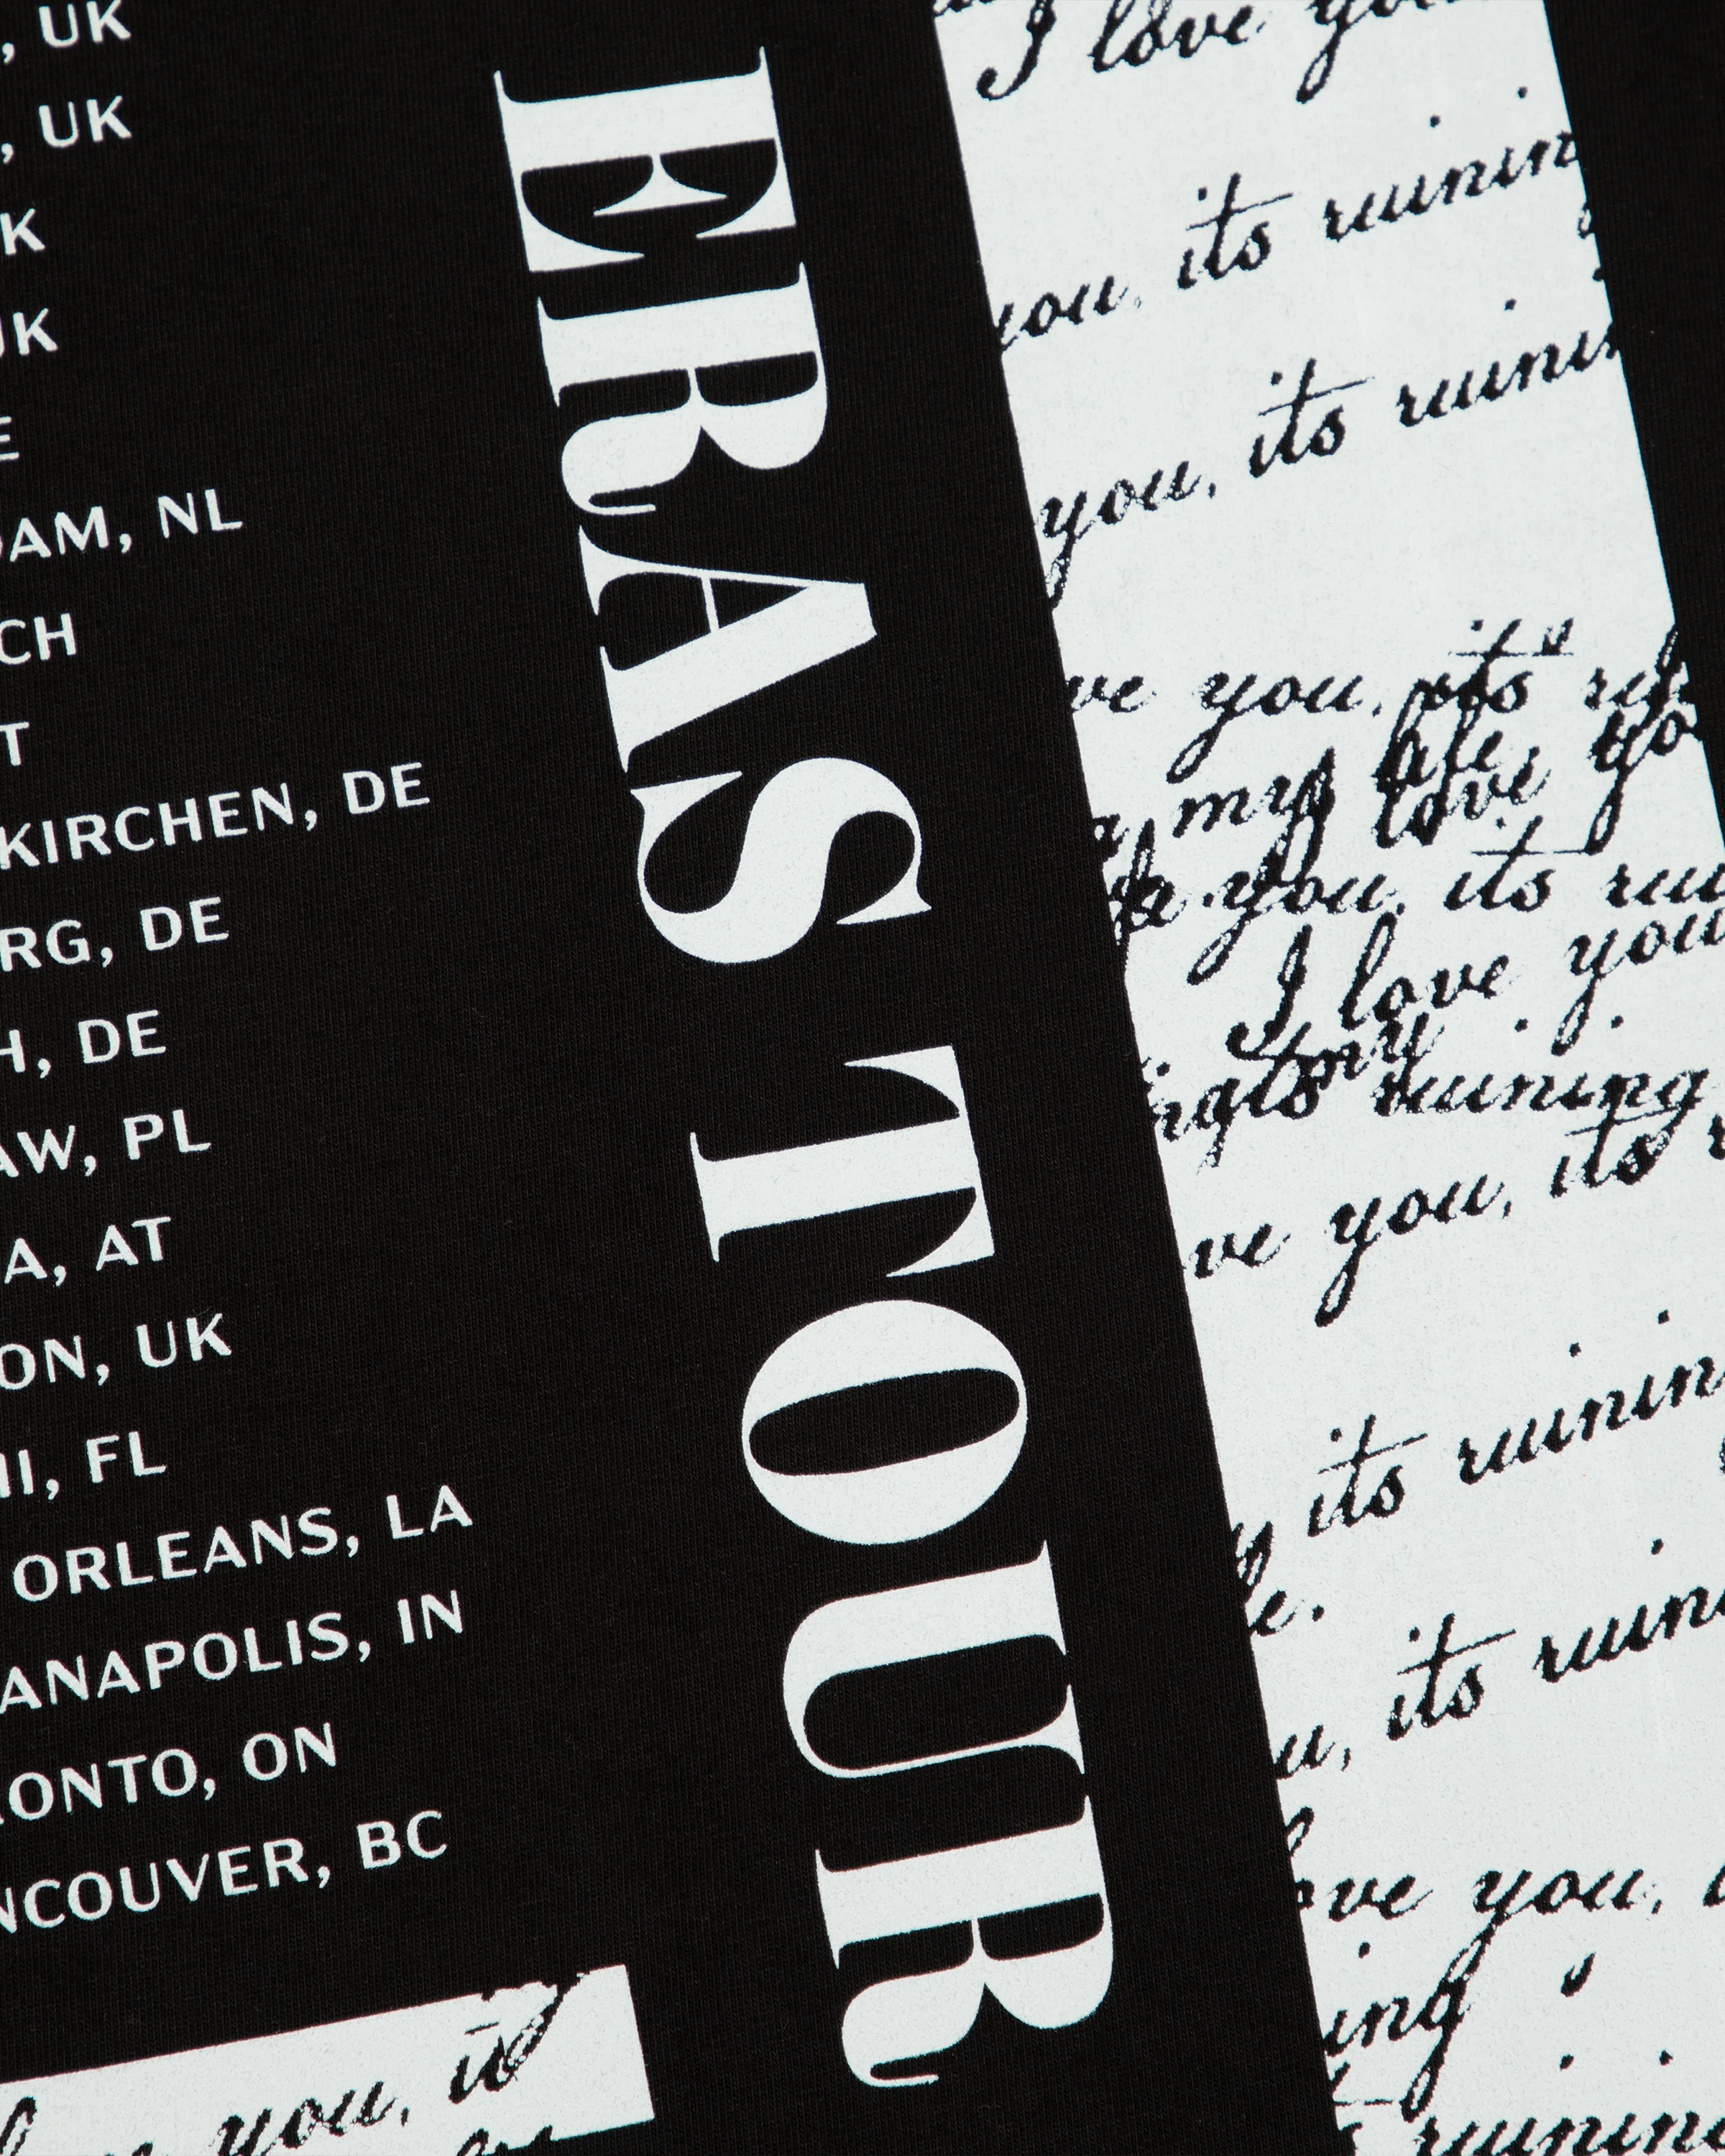 , UK
, UK
K
UK
E
DAM, NL
CH
T
KIRCHEN, DE
RG, DE
H, DE
AW, PL
A, AT
ON, UK
MI, FL
ORLEANS, LA
ANAPOLIS, IN
RONTO, ON
NCOUVER, BC
ERAS TOUR
I love you
you, its ruining
you, its ruini
ve you, its
my life,
I love yo
you, its rui
I love you
its ruining
ve you, its
its ruining
fe.
u, its ruini
love you,
ing
ruining
you, its